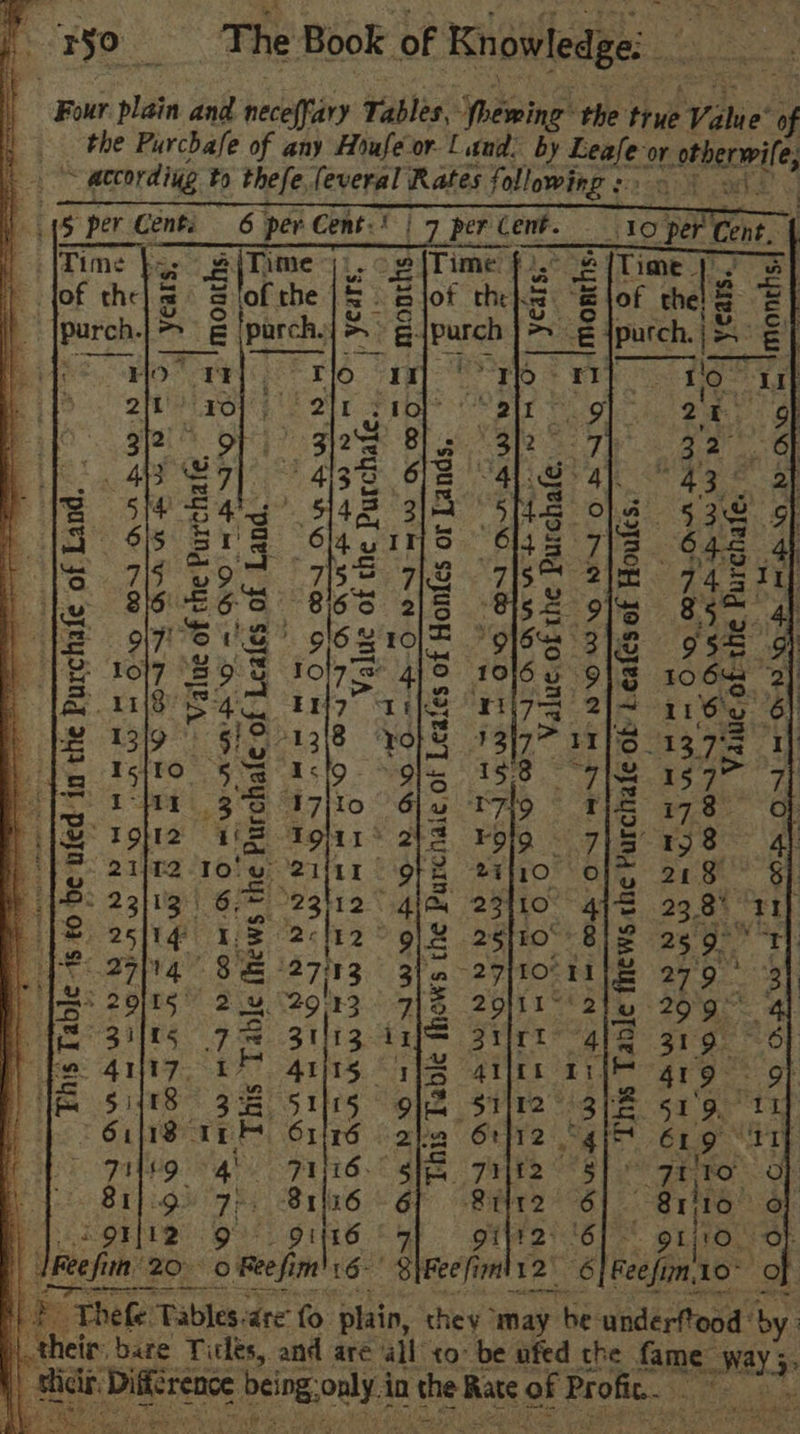 150 The Book of Knowledge:
Four plain and neceſſary Tables, ſhewing the true Value of
the Purchaſe of any Houſe or Land, by Leaſe or otherwiſe,
accordiug to theſe ſeveral Rates following :
5 per Cent. 6 per Cent. 7 per Cent. 10 per Cent.
Time of the purch. years. months Time of the purch. years. months Time of the purch years. months Time of the purch. years. months
This Table is to be uſed in the Purchaſe of Land.
Value of the Purchaſe.
This Table ſhews the Purchaſe of Leaſes of Land.
Value of the Purchaſe.
This Table ſhows the Purchaſe of Leaſes of Houſes or Lands.
Value of the Purchaſe.
This Table ſhews the Purchaſe of Leaſes of Houſes.
Value of the Purchaſe.
1 0 11 1 0 11 1 0 11 1 0 11
2 1 10 2 1 10 2 1 9 2 1 9
3 2 9 3 2 8 3 2 7 3 2 6
4 3 7 4 3 6 4 4 4 3 2
5 4 4 5 4 3 5 4 0 5 3 9
6 5 1 6 4 11 6 4 7 6 4 4
7 5 9 7 5 7 7 5 2 7 4 11
8 6 6 8 6 2 8 5 9 8 5 4
9 7 1 9 6 10 9 6 3 9 5 9
10 7 9 10 7 4 10 6 9 10 6 2
11 8 4 11 7 11 11 7 2 11 6 6
13 9 5 13 8 10 13 7 11 13 7 1
15 10 5 15 9 9 15 8 7 15 7 7
17 11 3 17 10 6 17 9 1 17 8 0
19 12 1 19 11 2 19 9 7 19 8 4
21 12 10 21 11 9 21 10 0 21 8 8
23 13 6 23 12 4 23 10 4 23 8 11
25 14 1 25 12 9 25 10 8 25 9 1
27 14 8 27 13 3 27 10 11 27 9 3
29 15 2 29 13 7 29 11 2 29 9 4
31 15 7 31 13 11 31 11 4 31 9 6
41 17 1 41 15 1 41 11 11 41 9 9
51 18 3 51 15 9 51 12 3 51 9 11
61 18 11 61 16 2 61 12 4 61 9 11
71 19 4 71 16 5 71 12 5 71 10 0
81 9 7 81 16 6 81 12 6 81 10 0
91 12 9 91 16 7 91 12 6 91 10 0
Fee ſim 20 0 Fee ſim 16 8 Fee ſim 12 6 Fee ſim 10 0
Theſe Tables are ſo plain, they may be underſtood by
their bare Titles, and are all to be uſed the ſame way;
their Difference being only in the Rate of Profit.